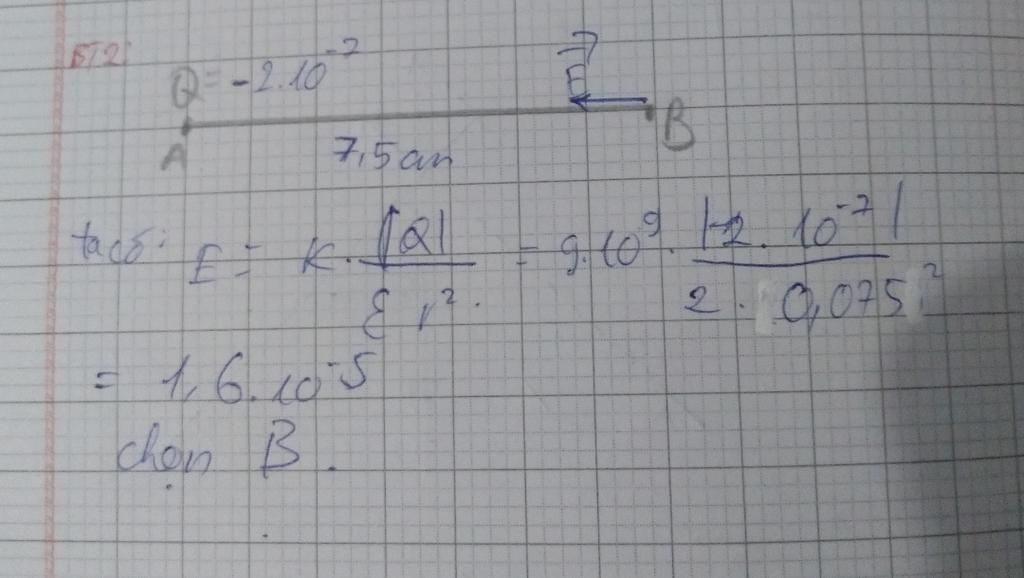 BT2:
Q = -2.10⁻⁷
E
A
B
7,5 cm
ta có: E = K. |Q| / ε r². = 9.10⁹. |-2. 10⁻⁷| / 2. 0,075²
= 1,6.10⁻⁵
chọn B.